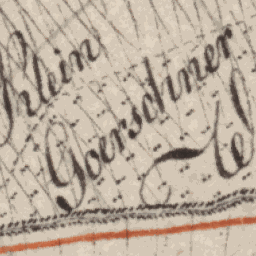 Klein
Goerschner